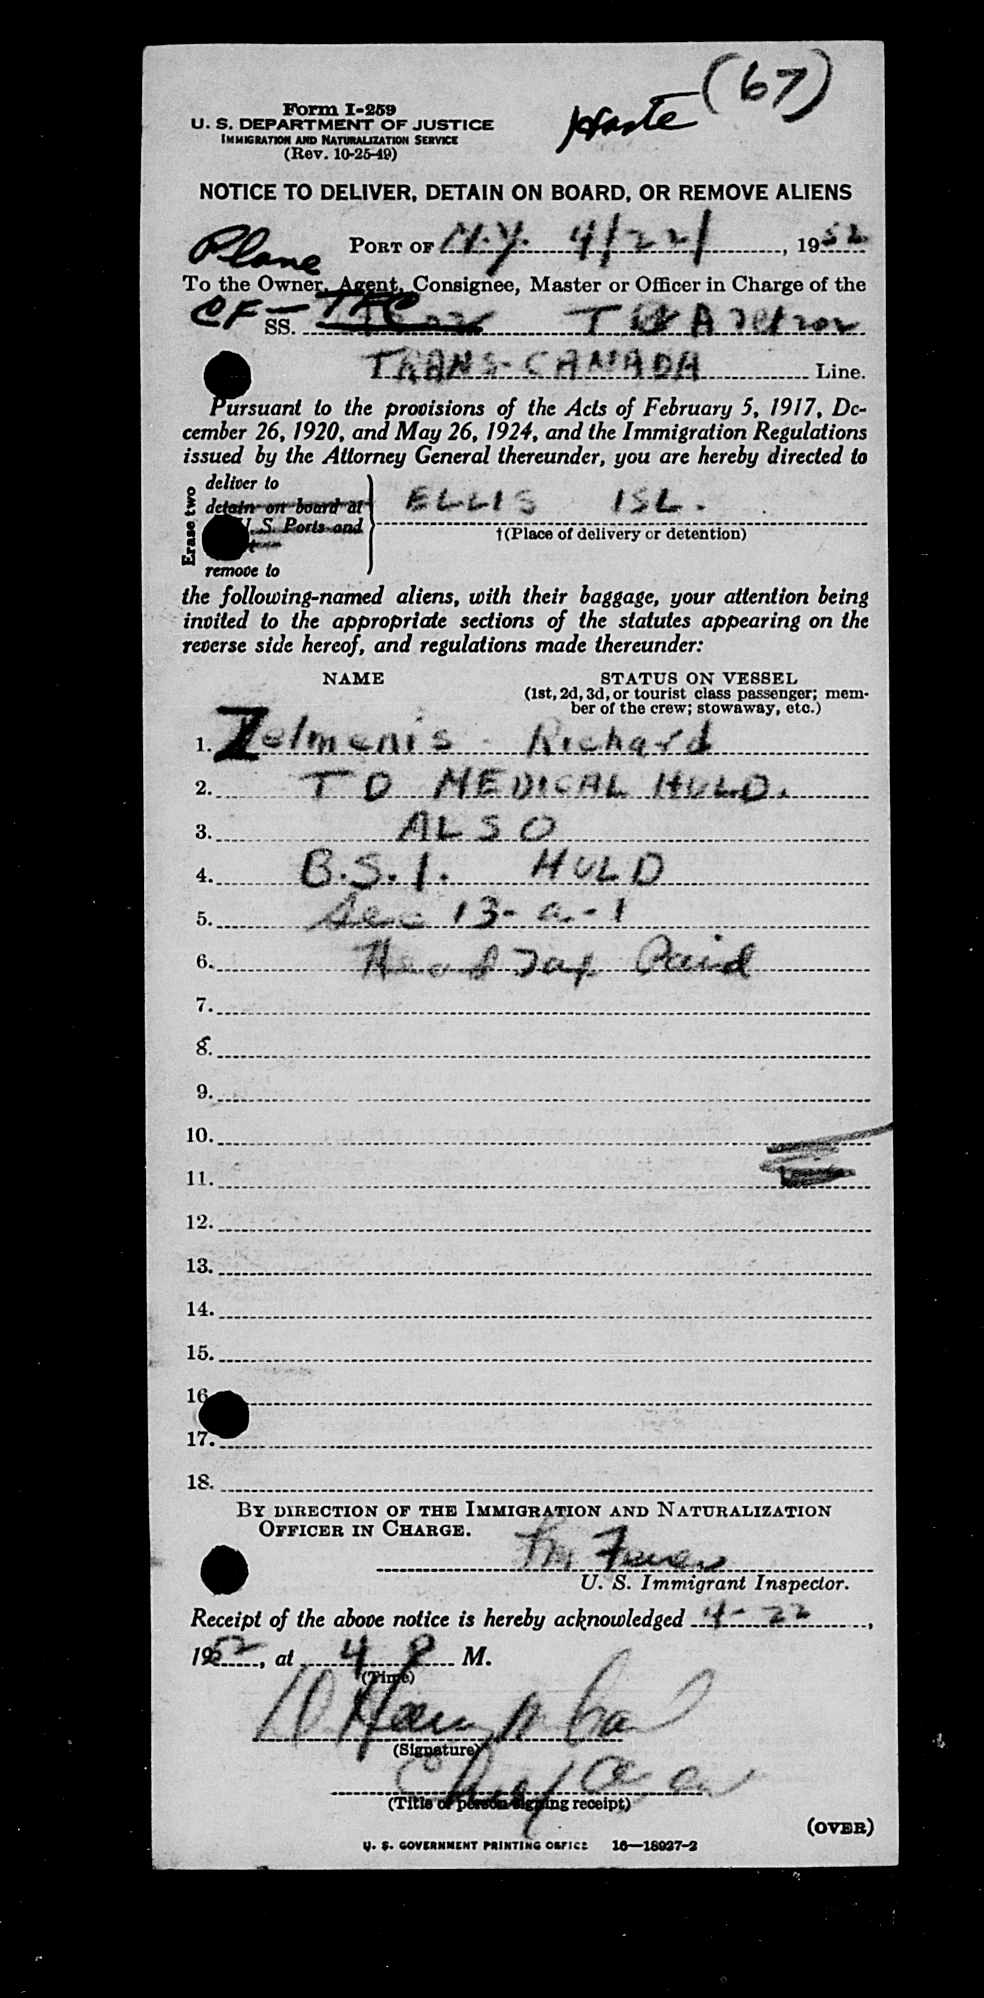 (67)
Form I-259
U. S. DEPARTMENT OF JUSTICE
IMMIGRATION AND NATURALIZATION SERVICE
(Rev. 10-25-49)
NOTICE TO DELIVER, DETAIN ON BOARD, OR REMOVE ALIENS
Plane PORT OF N.Y. 4/22/, 1952
To the Owner, Agent, Consignee, Master or Officer in Charge of the
CF- SS. TFC
TRANS-CANADA Line.
Pursuant to the provisions of the Acts of February 5, 1917, De-
cember 26, 1920, and May 26, 1924, and the Immigration Regulations
issued by the Attorney General thereunder, you are hereby directed to
Erase two
deliver to
detain on board at
U. S. Ports and
remove to
ELLIS ISL.
†(Place of delivery or detention)
the following-named aliens, with their baggage, your attention being
invited to the appropriate sections of the statutes appearing on the
reverse side hereof, and regulations made thereunder:
NAME STATUS ON VESSEL
(1st, 2d, 3d, or tourist class passenger; mem-
ber of the crew; stowaway, etc.)
1. Zelmenis - Richard
2. TD MEDICAL HOLD.
3. ALSO
4. B.S.I. HOLD
5. Sec 13-a-1
6. Head Tax Paid
7.
8.
9.
10.
11.
12.
13.
14.
15.
16.
17.
18.
BY DIRECTION OF THE IMMIGRATION AND NATURALIZATION
OFFICER IN CHARGE.
U. S. Immigrant Inspector.
Receipt of the above notice is hereby acknowledged 4-22,
1952, at 4 P M.
(Time)
(Signature)
(Title of person signing receipt)
(OVER)
U. S. GOVERNMENT PRINTING OFFICE 16—18927-2